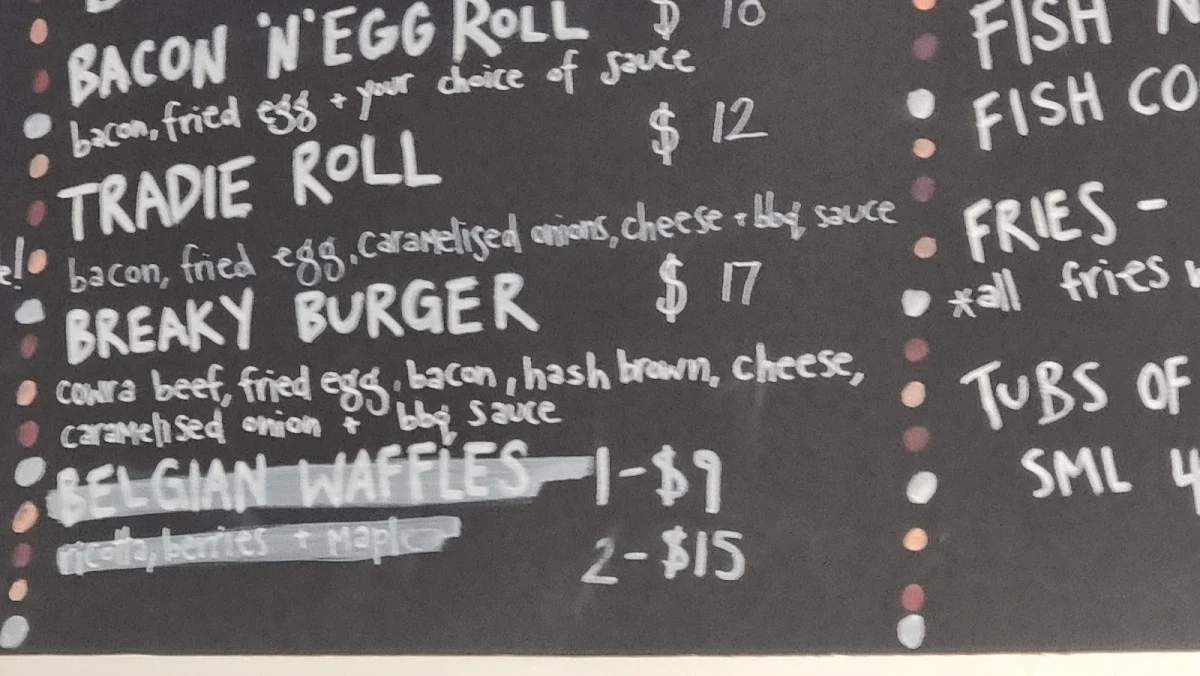 BACON 'N' EGG ROLL $ 10
bacon, fried egg + your choice of sauce
TRADIE ROLL $ 12
bacon, fried egg, caramelised onions, cheese + bbq sauce
BREAKY BURGER $ 17
cowra beef, fried egg, bacon, hash brown, cheese,
caramelised onion + bbq sauce
BELGIAN WAFFLES 1-$9
ricotta, berries + maple 2-$15
e!
FISH
FISH CO
FRIES -
*all fries
TUBS OF
SML 4